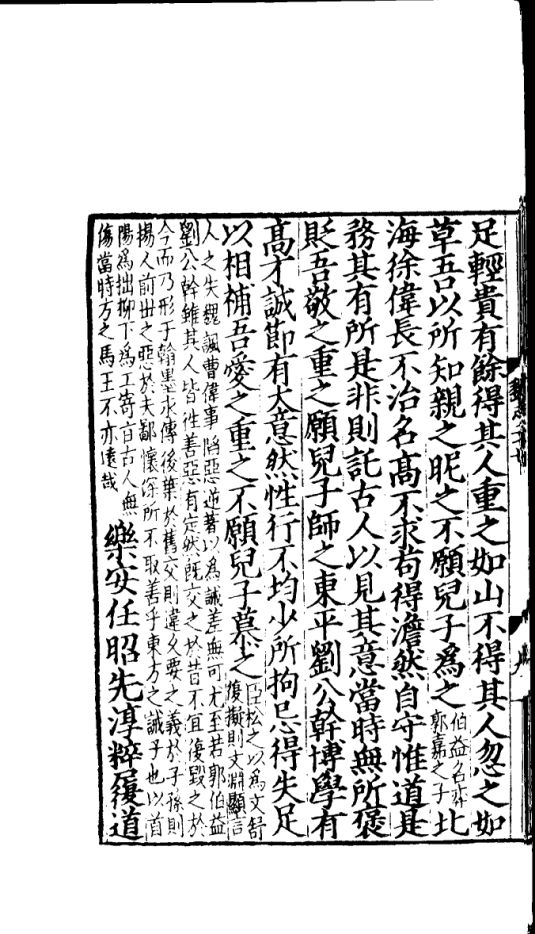 足輕貴有餘得其人重之如山不得其人忽之如
草吾以所知親之昵之不願兒子爲之
伯益名弈
郭嘉之子
北
海徐偉長不治名髙不求苟得澹然自守惟道是
務其有所是非則託古人以見其意當時無所襃
貶吾敬之重之願兒子師之東平劉公幹博學有
髙才誠節有大意然性行不均少所拘忌得失足
以相補吾愛之重之不願兒子慕之
臣松之以爲文舒
復擬則文淵顯言
人之失魏諷曹偉事陷惡逆著以爲誡差無可尤至若郭伯益
劉公幹雖其人皆往善惡有定然既交之於昔不宜復毀之於
今而乃形于翰墨永傳後葉於舊交則違乆要之義於子孫則
揚人前世之惡於夫鄙懷深所不取善乎東方之誡子也以首
陽爲拙柳下爲工寄旨古人無
傷當時方之馬王不亦遠哉
樂安任昭先淳粹履道